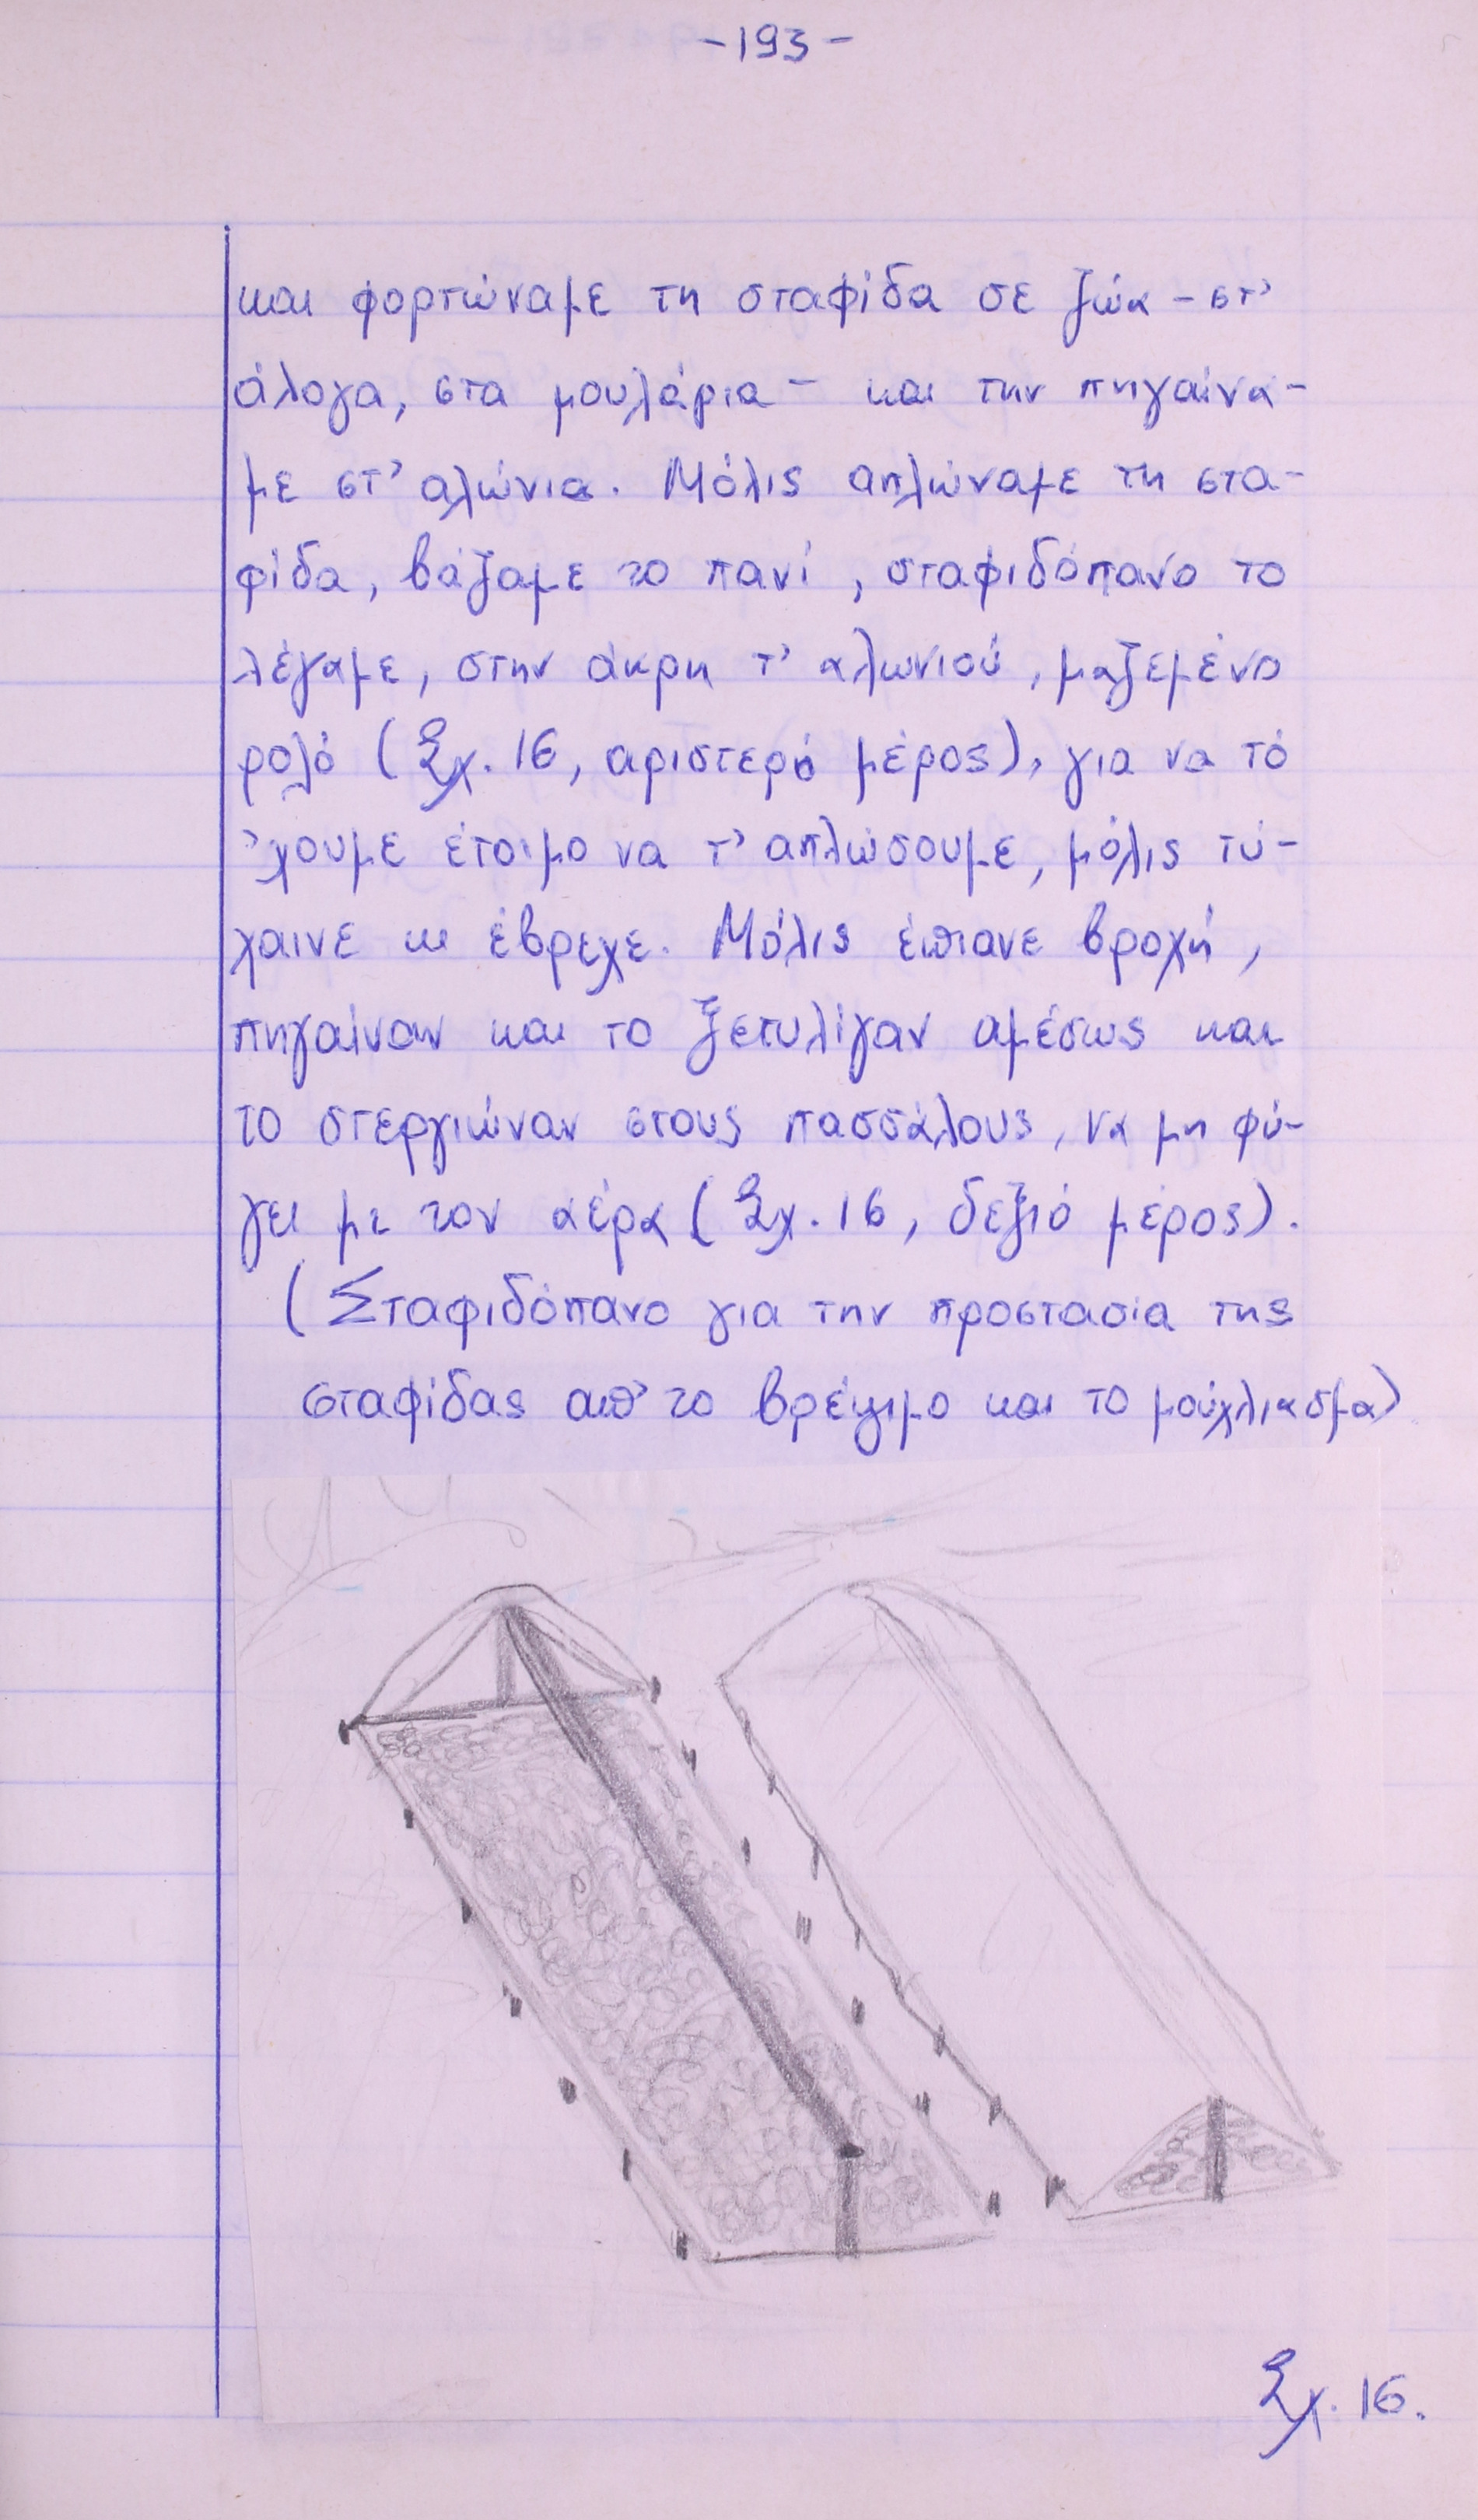 -193-
και φορτώναμε τη σταφίδα σε ζώα - στ'
άλογα, στα μουλάρια - και την πηγαίνα-
με στ' αλώνια. Μόλις απλώναμε τη στα-
φίδα, βάζαμε το πανί, σταφιδόπανο το
λέγαμε, στην άκρη τ' αλωνιού, μαζεμένο
ρολό (Σχ. 16, αριστερό μέρος), για να τό
'χουμε έτοιμο να τ' απλώσουμε, μόλις τύ-
χαινε κι έβρεχε. Μόλις έπιανε βροχή,
πηγαίναν και το ξετυλίγαν αμέσως και
το στεργιώναν στους πασσάλους, να μη φύ-
γει με τον αέρα (Σχ. 16, δεξιό μέρος).
(Σταφιδόπανο για την προστασία της
σταφίδας απ' το βρέξιμο και το μούχλιασμα)
Σχ. 16.